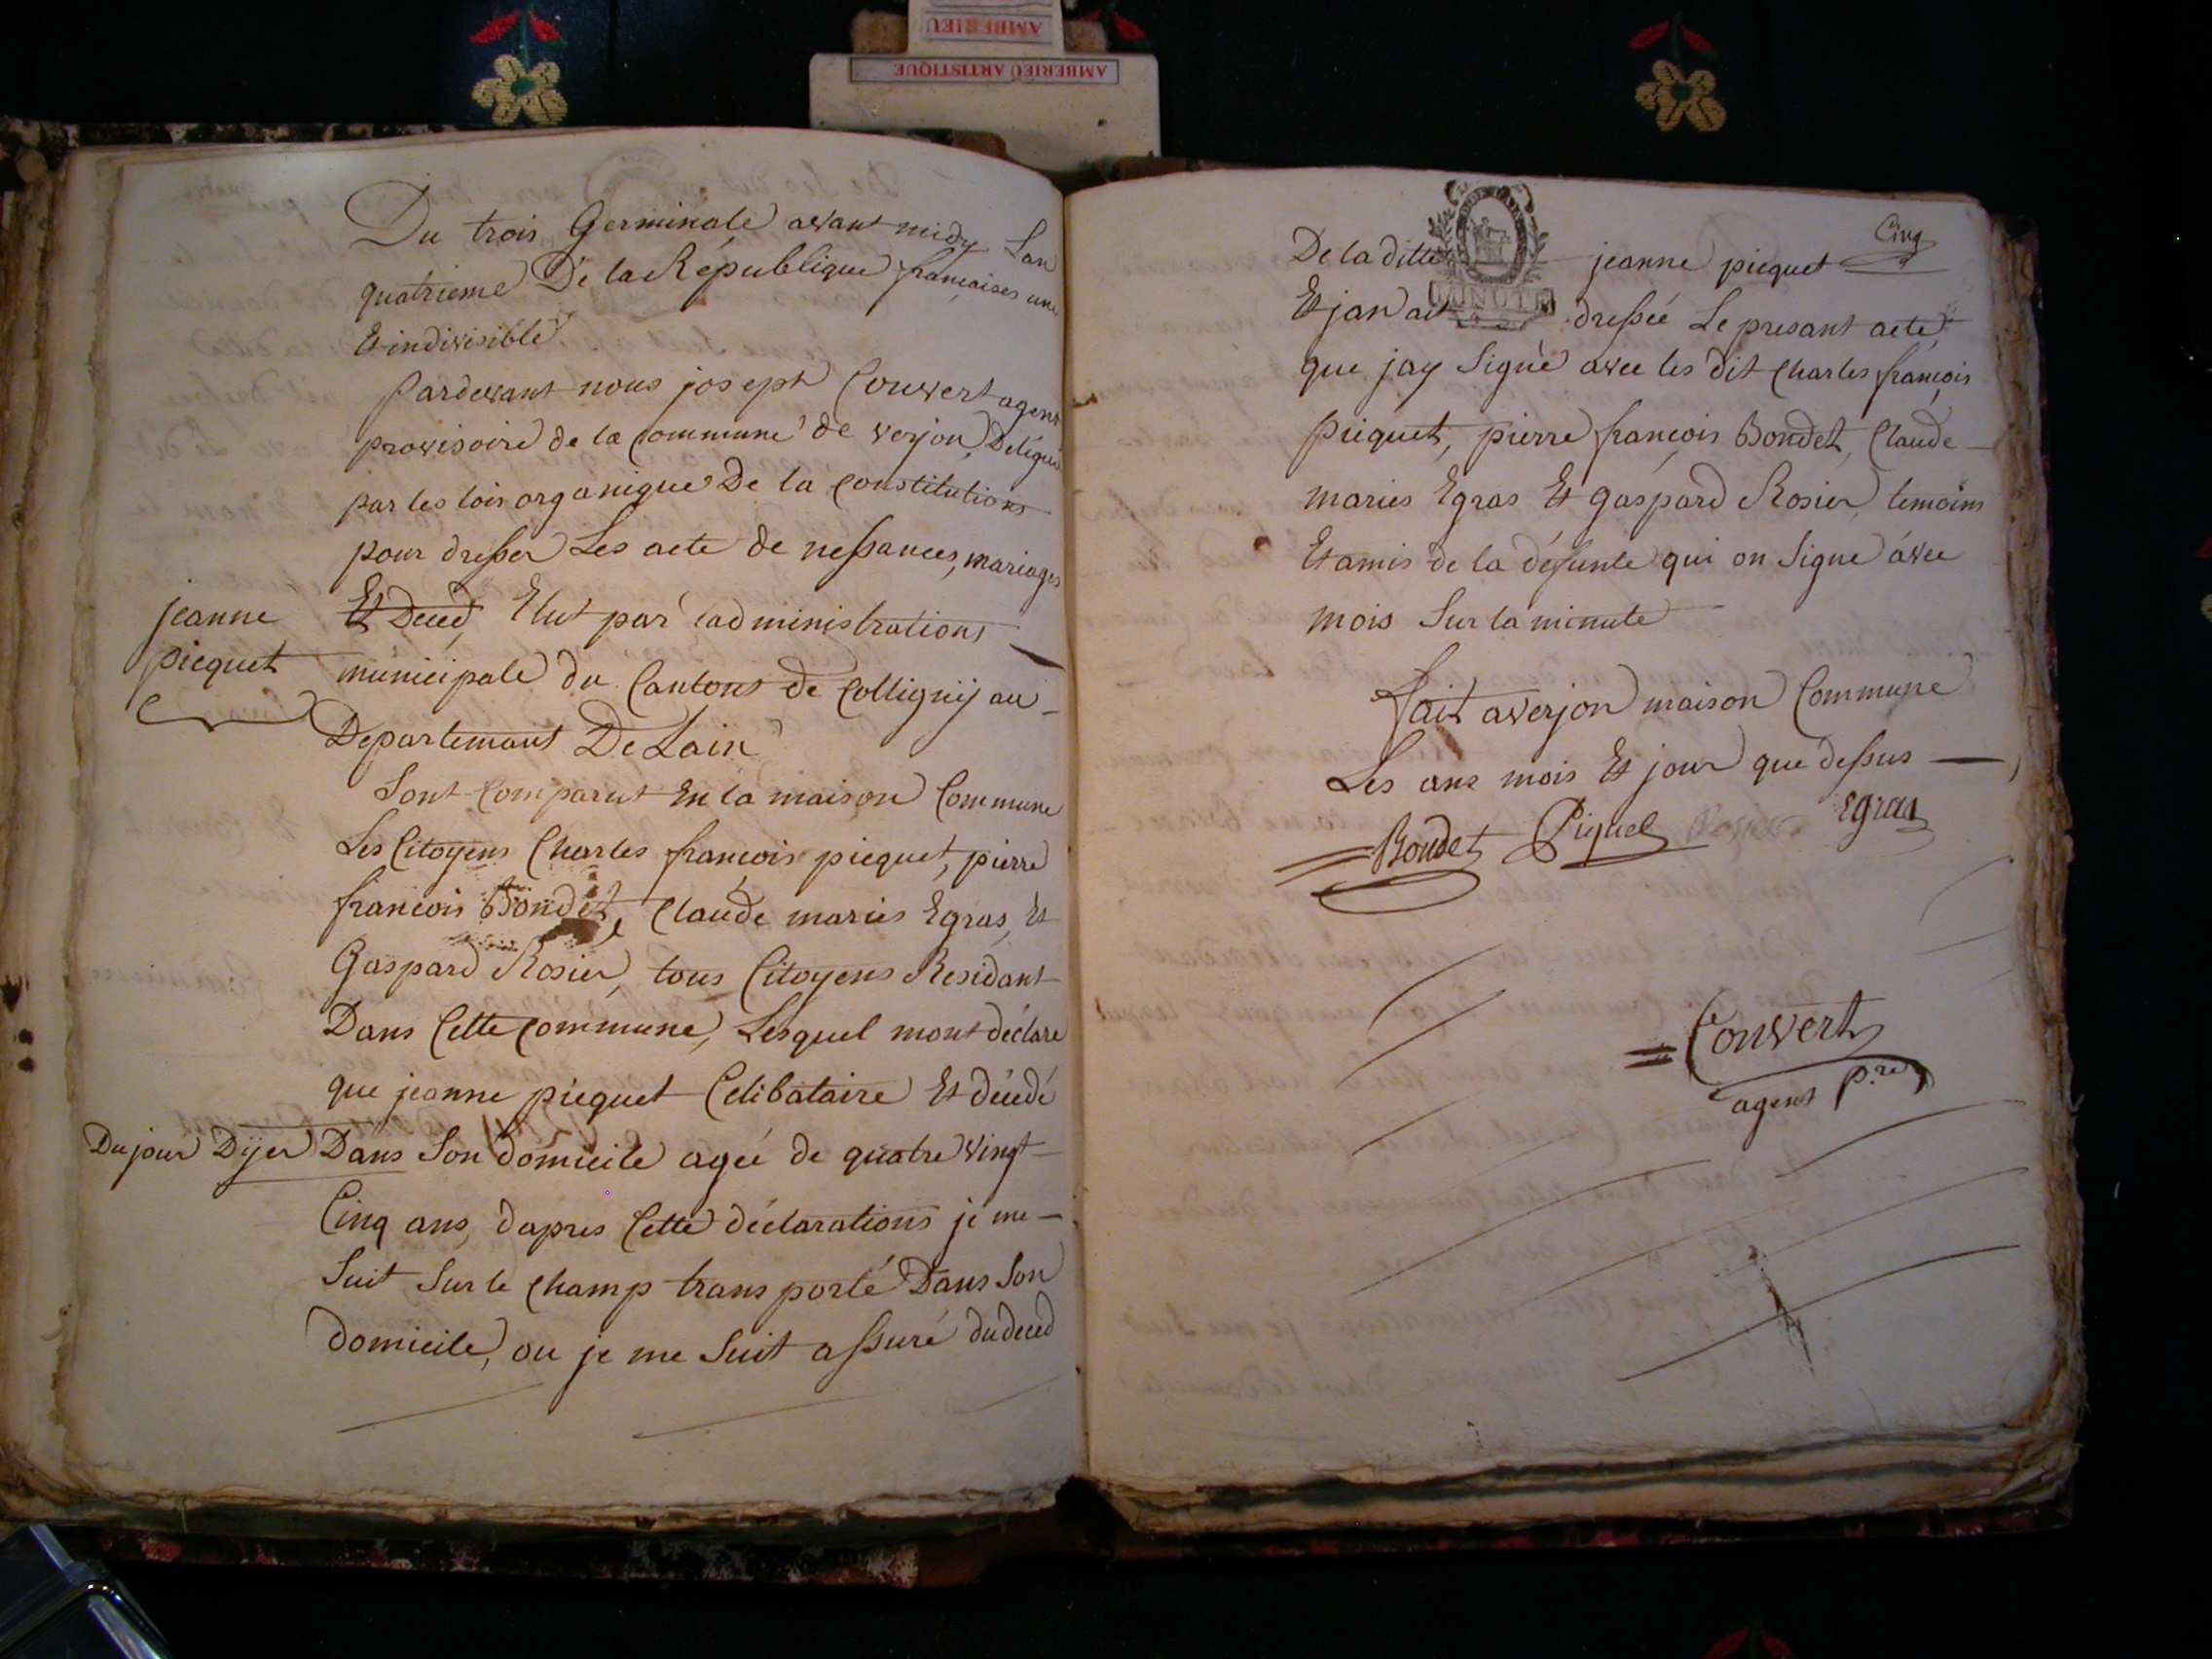 AMBERIEU
AMBERIEU ARTISTIQUE
Du trois Germinale avant midy Lan
quatrieme De la République francaises une
Et indivisible
Pardevant nous joseph Convert agent
provisoire de la Commune de verjon, Deligué
par les lois organique De la Constitutions
pour dresser Les acte de nessances, mariages
Et Deced, Elut par ladministrations
municipale du Cantons de Colligniy au
Departemant De Lain
jeanne
picquet
Sont Comparut En la maison Commune
Les Citoyens Charles francois picquet, pierre
francois Bondet, Claude maries Egras, Et
Gaspard Rosier, tous Citoyens Residant
Dans Cette Commune, Lesquel mont déclare
que jeanne picquet Celibataire Et décédé
Du jour Dijer Dans Son domicile agée de quatre vingt
Cinq ans, dapres Cette déclarations je me
Suit Sur le Champ transporté Dans Son
domicile, ou je me Suit assuré du deced
Cinq
De la ditte jeanne picquet
MINUTE
Et jan ait dressée Le presant acte,
que jay Signé avec les dit Charles francois
picquet, pierre francois Bondet, Claude
maries Egras Et gaspard Rosier temoins
Et amis de la défunte qui on Signe avec
mois Sur la minute
fait a verjon maison Commune
Les ans mois Et jour que dessus
Bondet Piquet Rosier Egras
Convert
agent p.re